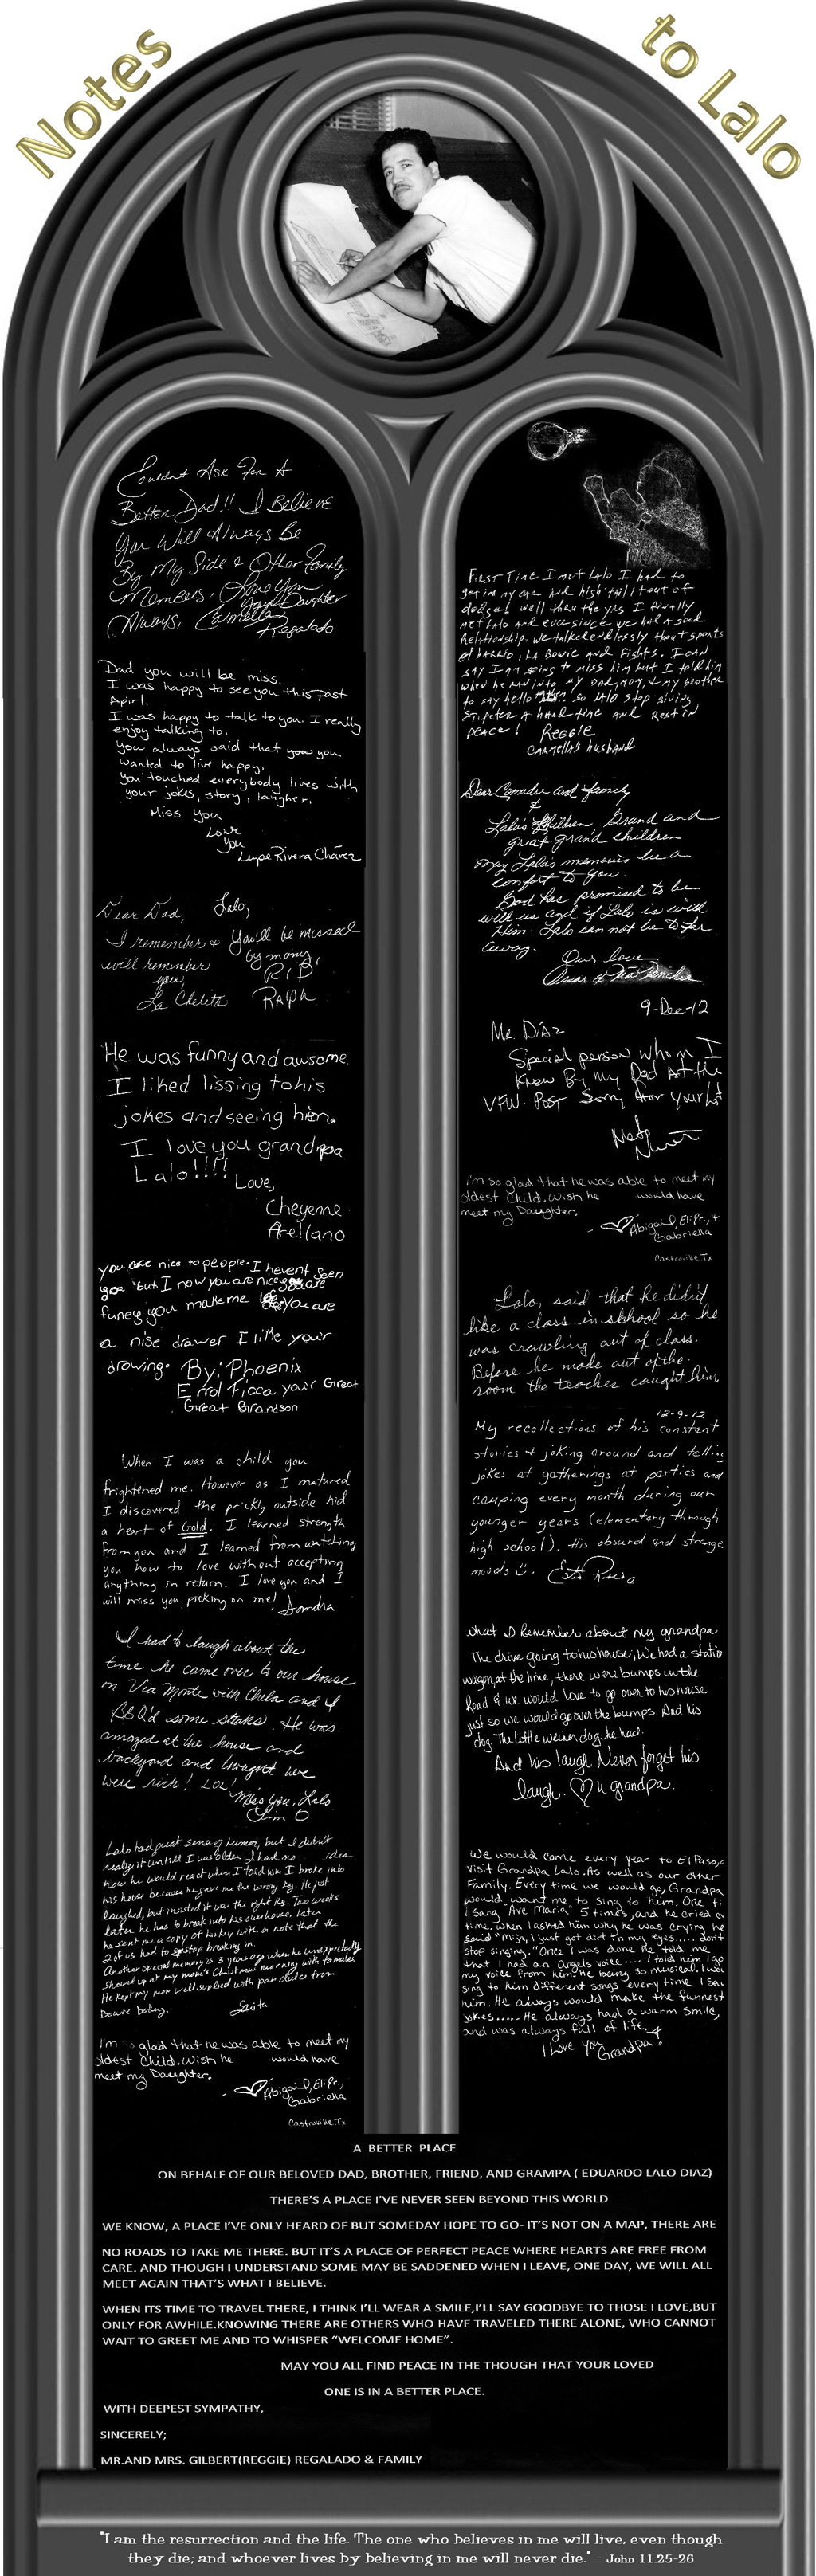 Notes to Lalo
Couldnt Ask For A
Better Dad!! I Believe
You Will Always Be
By My Side & Other Family
Members. Love You
Always, Your Daughter
Carmella
Regalado
Dad you will be miss.
I was happy to see you this past
Apirl.
I was happy to talk to you. I really
enjoy talking to.
You always said that you you
wanted to live happy.
you touched everybody lives with
your jokes, story, laugher.
Miss You
Love
You
Lupe Rivera Chávez
Dear Dad,
I remember &
will remember
you,
La Chelita
Lalo,
You'll be missed
by many,
RIP
Ralph
He was funny and awsome.
I liked lissing to his
jokes and seeing him.
I love you grandpa
Lalo!!!!
Love,
Cheyenne
Arellano
you are nice to people. I hevent seen
you but I now you are nice you are
funey you make me you are
a nise drawer I like your
drowing. By: Phoenix
Errol Ficca your Great
Great Grandson
When I was a child you
frightened me. However as I matured
I discovered the prickly outside hid
a heart of Gold. I learned strength
from you and I learned from watching
you how to love without accepting
anything in return. I love you and I
will miss you picking on me! Sondra
I had to laugh about the
time he came over to our house
on Via Monte with Chela and I
BBQ'd some steaks. He was
amazed at the house and
backyard and thought we
were rich! LOL!
Miss you, Lalo
Lalo had great sense of humor, but I didn't
realize it untill I was older. I had no idea
how he would react when I told him I broke into
his house because he gave me the wrong key. He just
laughed, but insisted it was the right key. Two weeks
later he has to break into his own house. Later
he sent me a copy of his key with a note that the
2 of us had to stop breaking in.
Another special memory is 3 years ago when he unexpectedly
showed up at my mom's Christmas morning with tamales
He kept my mom well supplied with pan dulce from
Bowie bakery.
I'm so glad that he was able to meet my
oldest Child. Wish he would have
meet my Daughter.
- Abigail, Eli Pr.,
Gabriella
Castroville Tx
First Time I met Lalo I had to
get in my car and high tail it out of
dodge! well thru the yrs I finally
met Lalo and ever since we had a good
Relationship. We talked endlessly about sports
el barrio, La Bowie and Fights. I can
say I am going to miss him but I told him
when he ran into my Dad, mom, & my brother
to say hello so Lalo stop giving
St. peter a hard time and Rest in
peace! Reggie
Carmella's husband
Dear Comadre and family
&
Lalo's Children Grand and
great grand children
May Lalo's memories be a
comfort to you.
God has promised to be
with us and if Lalo is with
Him. Lalo can not be to far
away.
Our love
9-Dec-12
Mr. Diaz
Special person whom I
Knew By my Dad At the
VFW. Post Sorry for your
I'm so glad that he was able to meet my
oldest Child. Wish he would have
meet my Daughter.
- Abigail, Eli Pr., &
Gabriella
Castroville Tx
Lalo, said that he didn't
like a class in skhool so he
was crawling out of class.
Before he made out of the
room the teacher caught him.
12-9-12
My recollections of his constant
stories & joking around and telling
jokes at gatherings at parties and
camping every month during our
younger years (elementary through
high school). His absurd and strange
moods
What I Remember about my grandpa
The drive going to his house; We had a statio
wagon, at the time, there were bumps in the
Road & we would love to go over to his house
just so we would go over the bumps. And his
dog. The little weiner dog he had.
And his laugh. Never forget his
laugh. ♡ u grandpa.
We would come every year to El Paso,
visit Grandpa Lalo. As well as our other
Family. Every time we would go, Grandpa
would want me to sing to him. One ti
I sang "Ave Maria" 5 times, and he cried ev
time. When I asked him why he was crying, he
said "Mija, I just got dirt in my eyes..... don't
stop singing." Once I was done he told me
that I had an Angels voice.... I told him I go
my voice from him. He being so musical. I wou
sing to him different songs every time I saw
him. He always would make the funnest
jokes..... He always had a warm smile,
and was always full of life.
I Love You Grandpa!
A BETTER PLACE
ON BEHALF OF OUR BELOVED DAD, BROTHER, FRIEND, AND GRAMPA ( EDUARDO LALO DIAZ)
THERE'S A PLACE I'VE NEVER SEEN BEYOND THIS WORLD
WE KNOW, A PLACE I'VE ONLY HEARD OF BUT SOMEDAY HOPE TO GO- IT'S NOT ON A MAP, THERE ARE
NO ROADS TO TAKE ME THERE. BUT IT'S A PLACE OF PERFECT PEACE WHERE HEARTS ARE FREE FROM
CARE. AND THOUGH I UNDERSTAND SOME MAY BE SADDENED WHEN I LEAVE, ONE DAY, WE WILL ALL
MEET AGAIN THAT'S WHAT I BELIEVE.
WHEN ITS TIME TO TRAVEL THERE, I THINK I'LL WEAR A SMILE,I'LL SAY GOODBYE TO THOSE I LOVE,BUT
ONLY FOR AWHILE.KNOWING THERE ARE OTHERS WHO HAVE TRAVELED THERE ALONE, WHO CANNOT
WAIT TO GREET ME AND TO WHISPER "WELCOME HOME".
MAY YOU ALL FIND PEACE IN THE THOUGH THAT YOUR LOVED
ONE IS IN A BETTER PLACE.
WITH DEEPEST SYMPATHY,
SINCERELY;
MR.AND MRS. GILBERT(REGGIE) REGALADO & FAMILY
"I am the resurrection and the life. The one who believes in me will live, even though
they die; and whoever lives by believing in me will never die." - John 11:25-26